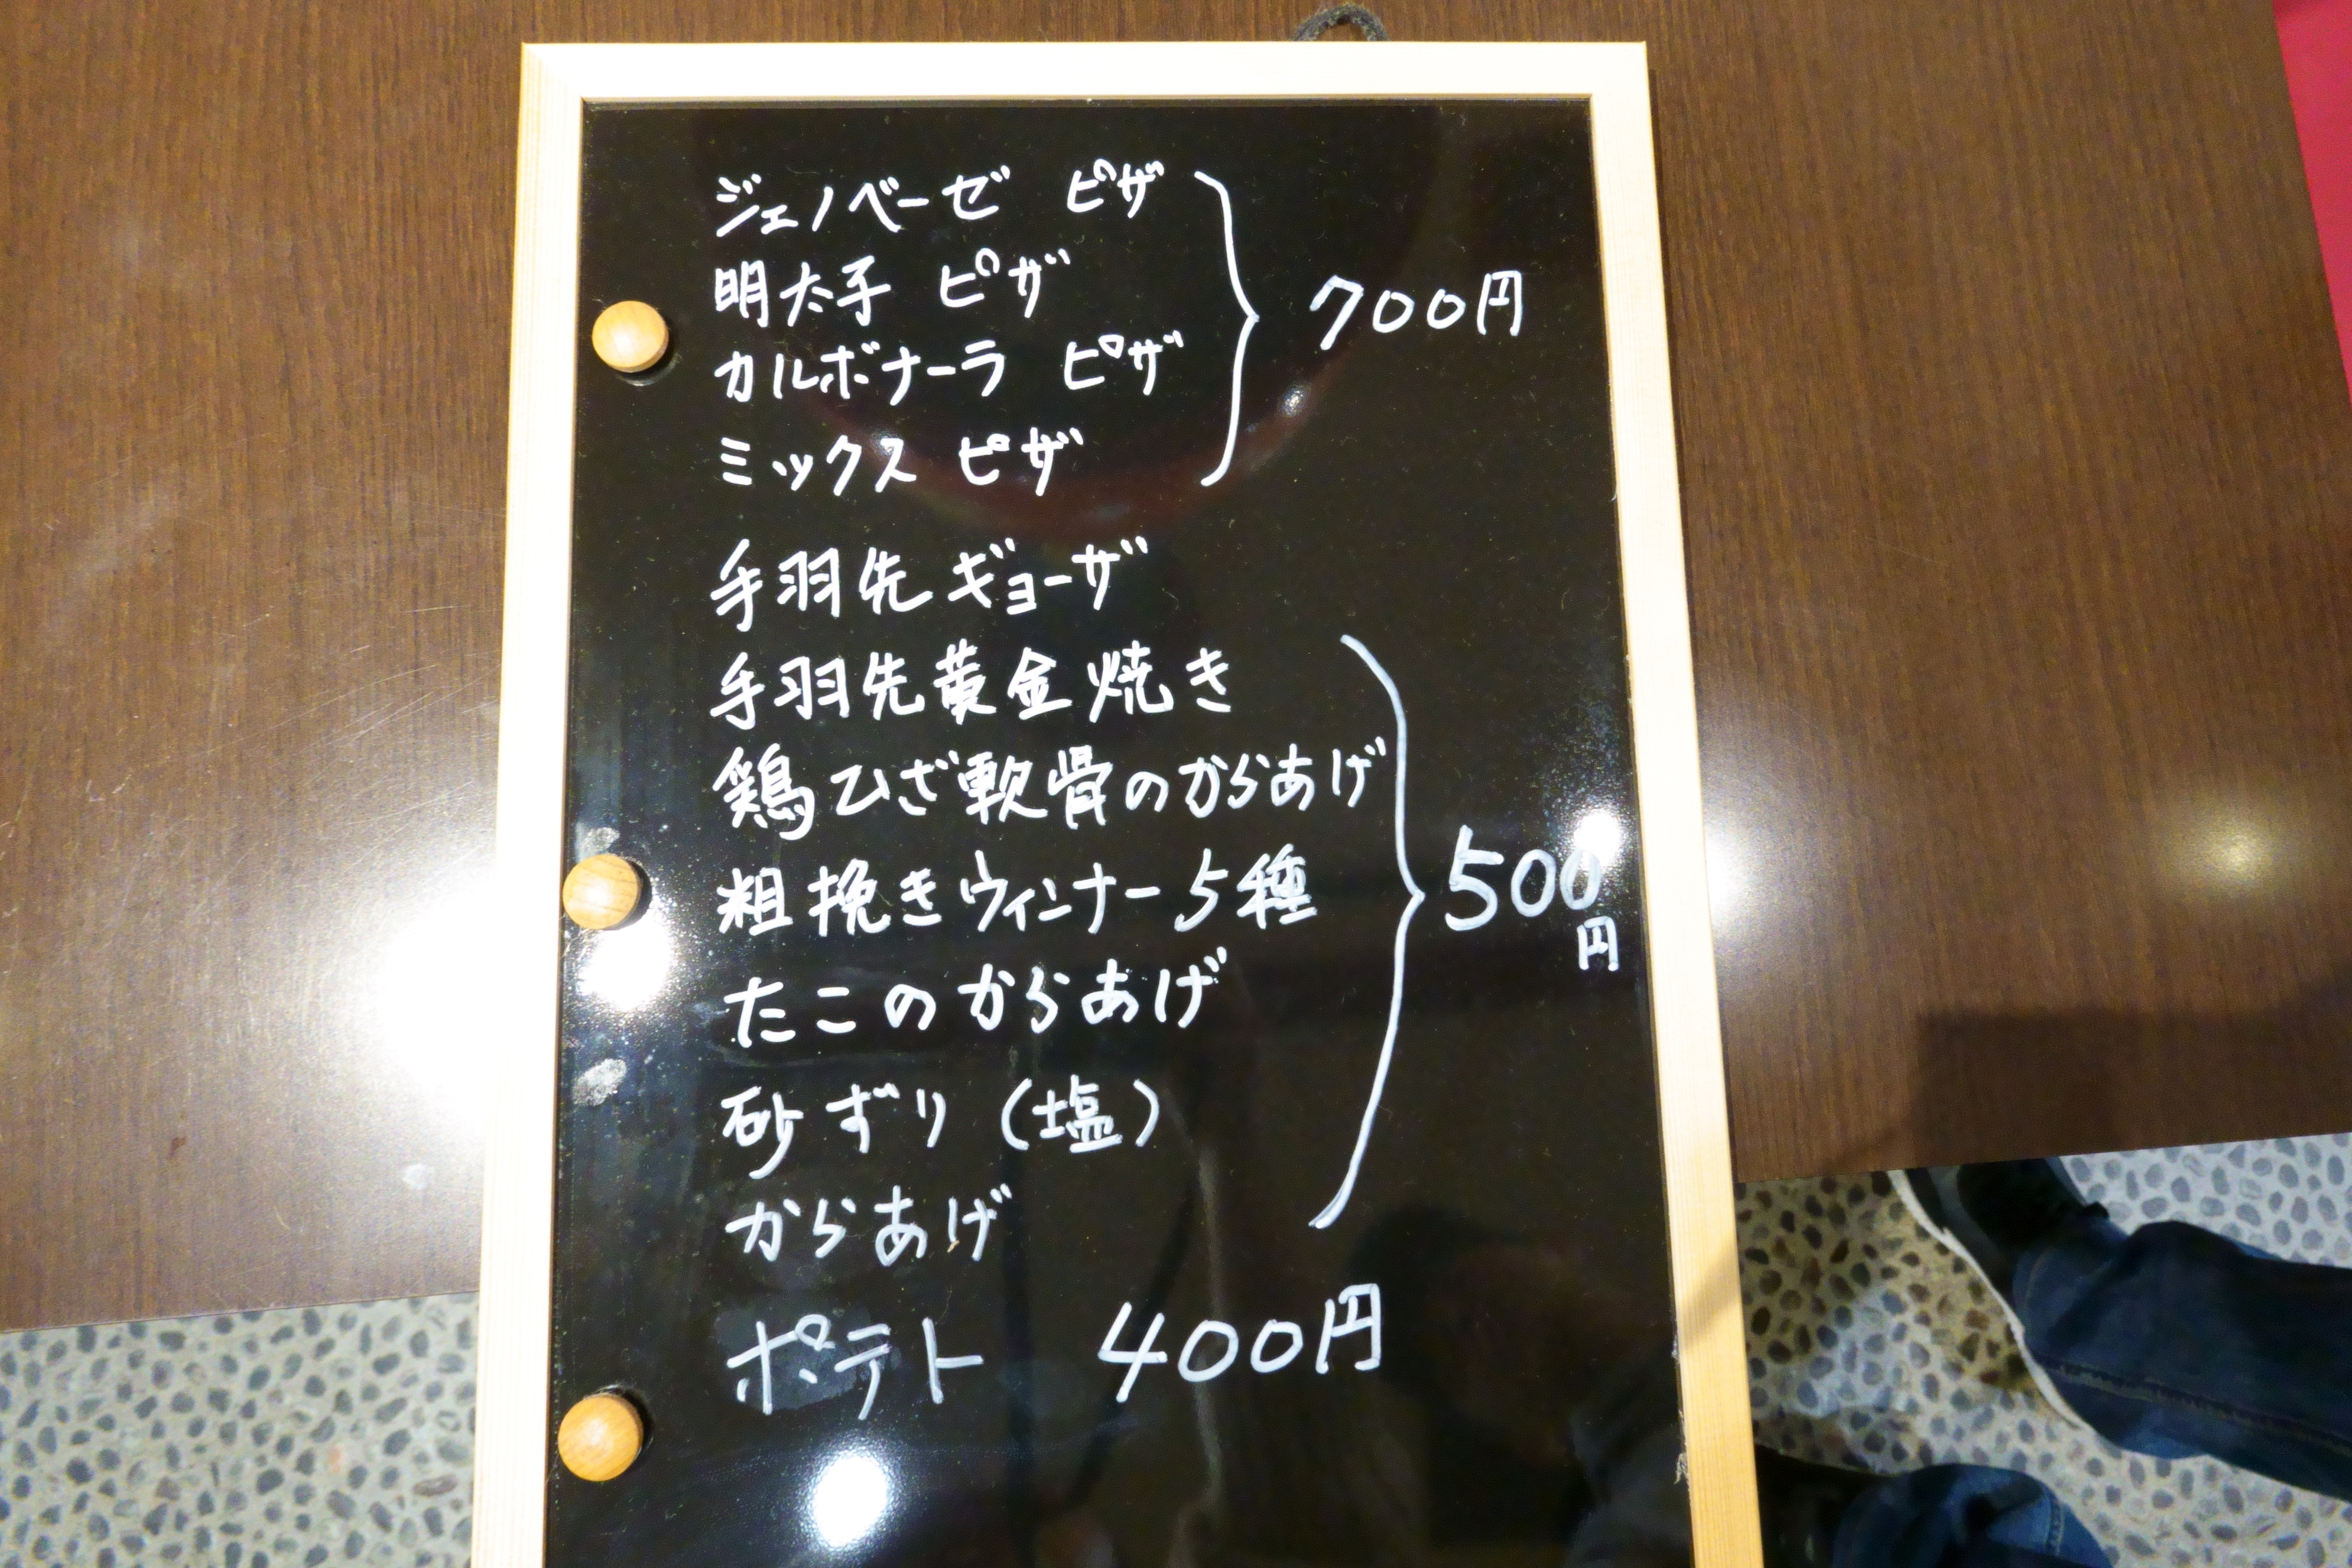 ジェノベーゼ ピザ
明太子 ピザ
カルボナーラ ピザ
ミックス ピザ
700円
手羽先ギョーザ
手羽先黄金焼き
鶏ひざ軟骨のからあげ
粗挽きウィンナー5種
たこのからあげ
砂ずり(塩)
からあげ
500
円
ポテト 400円